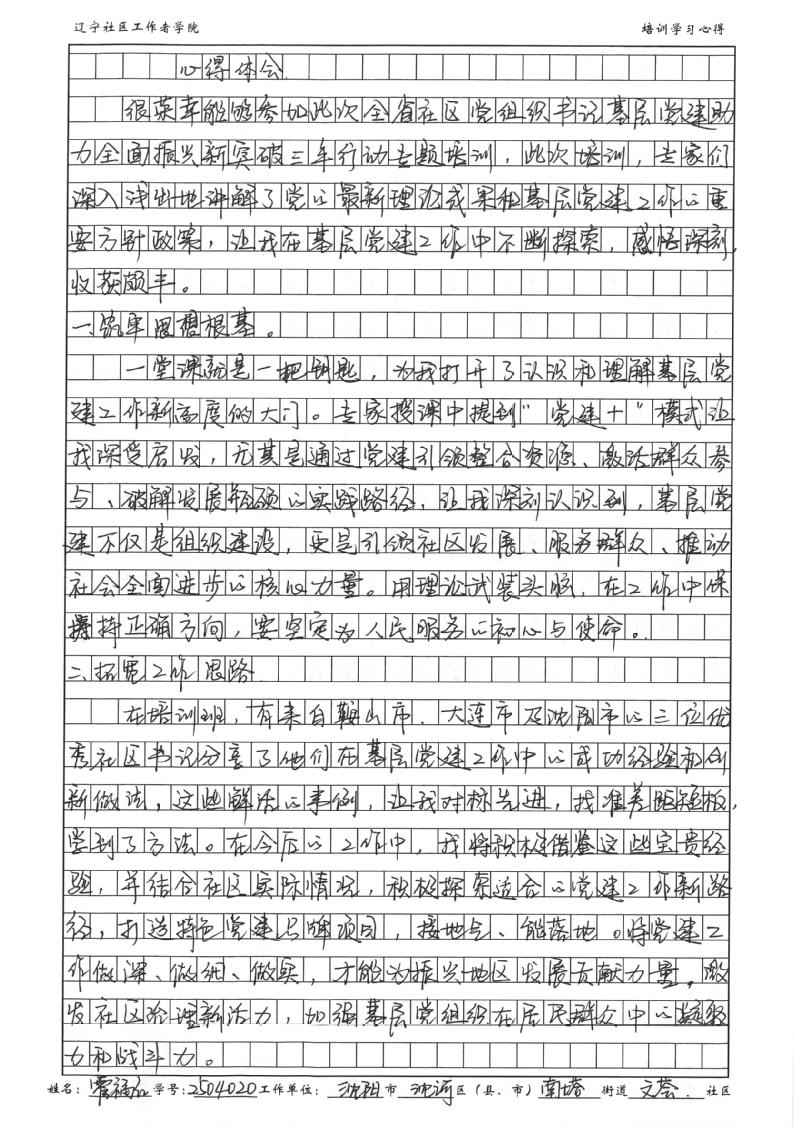 辽宁社区工作者学院 培训学习心得
心得体会
很荣幸能够参加此次全省社区党组织书记基层党建助
力全面振兴新突破三年行动专题培训，此次培训，专家们
深入浅出地讲解了党的最新理论成果和基层党建工作的重
要方针政策，让我在基层党建工作中不断探索，感悟深刻，
收获颇丰。
一、筑牢思想根基。
一堂课就是一把钥匙，为我打开了认识和理解基层党
建工作新高度的大门。专家授课中提到"党建+"模式让
我深受启发，尤其是通过党建引领整合资源、激活群众参
与、破解发展瓶颈的实践路径，让我深刻认识到，基层党
建不仅是组织建设，更是引领社区发展、服务群众、推动
社会全面进步的核心力量。用理论武装头脑，在工作中保
持正确方向，要坚定为人民服务的初心与使命。
二、拓宽工作思路
在培训班，有来自鞍山市、大连市及沈阳市的三位优
秀社区书记分享了他们在基层党建工作中的成功经验和创
新做法，这些鲜活的事例，让我对标先进，找准差距短板，
学到了方法。在今后的工作中，我将积极借鉴这些宝贵经
验，并结合社区实际情况，积极探索适合的党建工作新路
径，打造特色党建品牌项目，接地气、能落地。将党建工
作做深、做细、做实，才能为振兴地区发展贡献力量，激
发社区治理新活力，加强基层党组织在居民群众中的凝聚
力和战斗力。
姓名：学号：2504020工作单位：沈阳市沈河区（县、市）南塔街道文荟社区